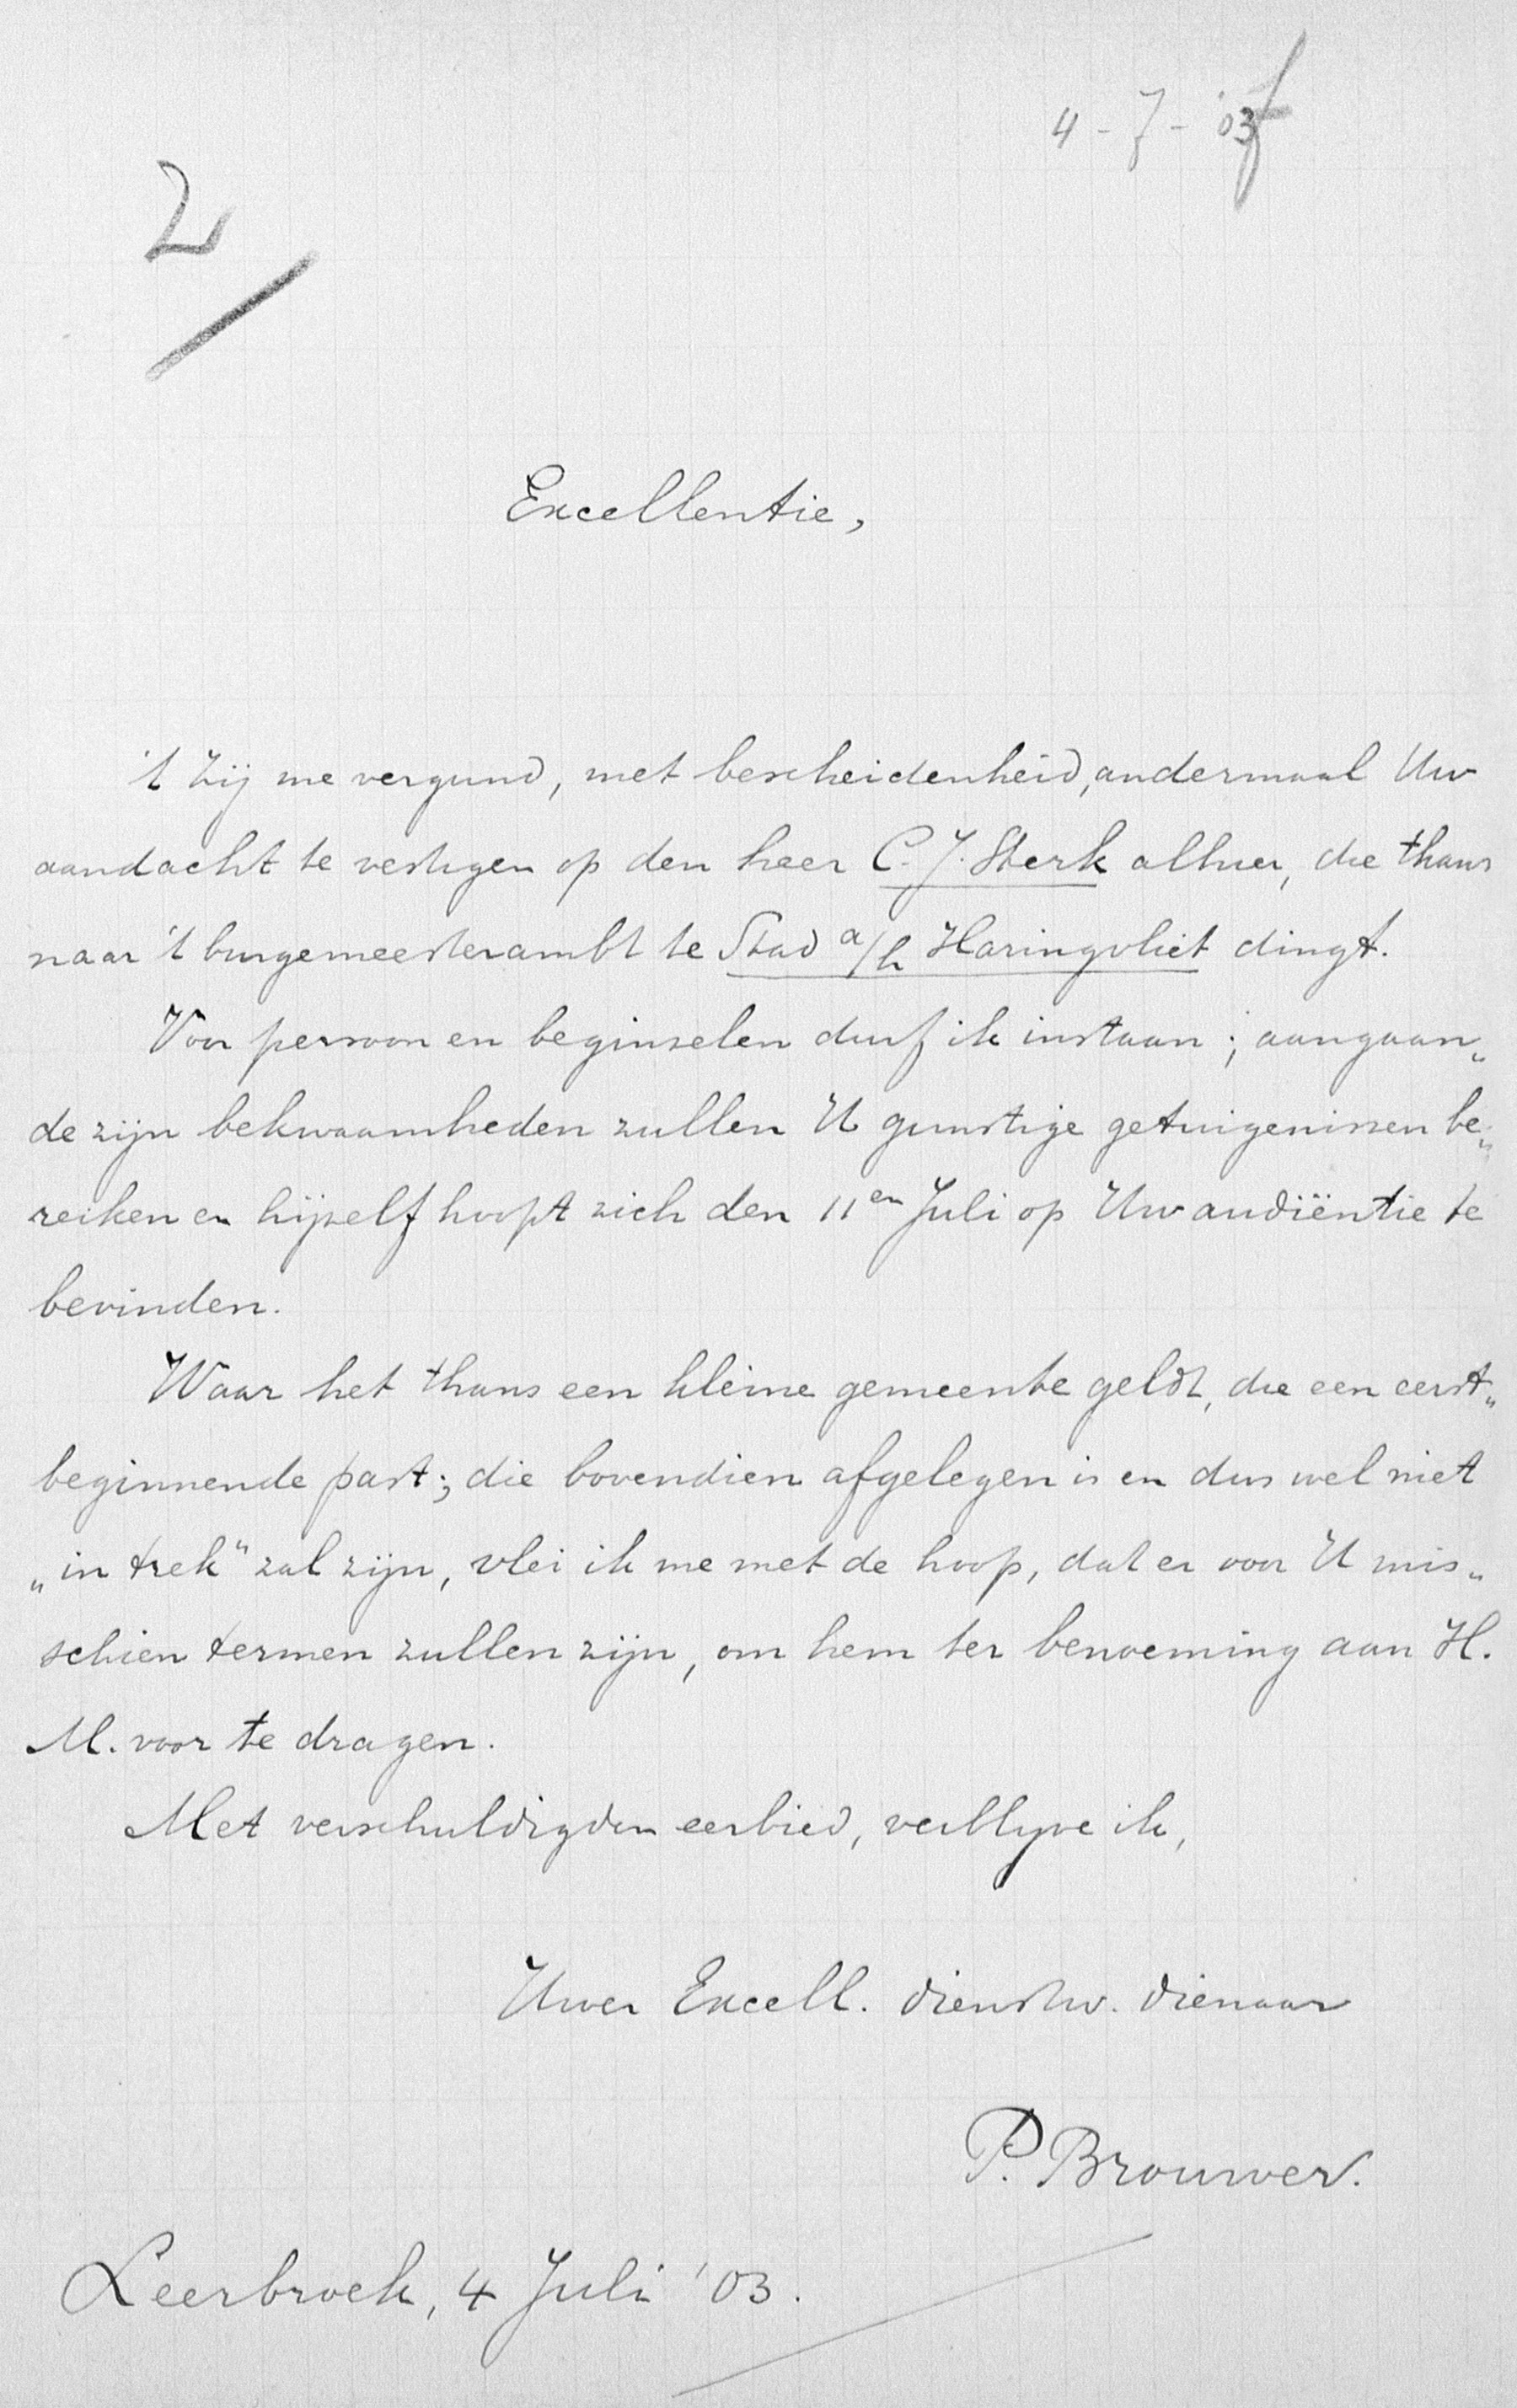 4-7-'03
2
Excellentie,
't zij me vergund, met bescheidenheid, andermaal Uw
aandacht te vestigen op den heer C. J. Sterk alhier, die thans
naar 't burgemeesterambt te Stad a/h Haringvliet dingt.
Voor persoon en beginselen durf ik instaan; aangaan„
de zijn bekwaamheden zullen U gunstige getuigenissen be„
reiken en hijzelf hoopt zich den 11en Juli op Uw audiëntie te
bevinden.
Waar het thans een kleine gemeente geldt, die een eerst„
beginnende past; die bovendien afgelegen is en dus wel niet
„in trek" zal zijn, vlei ik me met de hoop, dat er voor U mis„
schien termen zullen zijn, om hem ter benoeming aan H.
M. voor te dragen.
Met verschuldigden eerbied, verblyve ik,
Uwer Excell. dienstw. dienaar
P. Brouwer.
Leerbroek, 4 Juli '03.